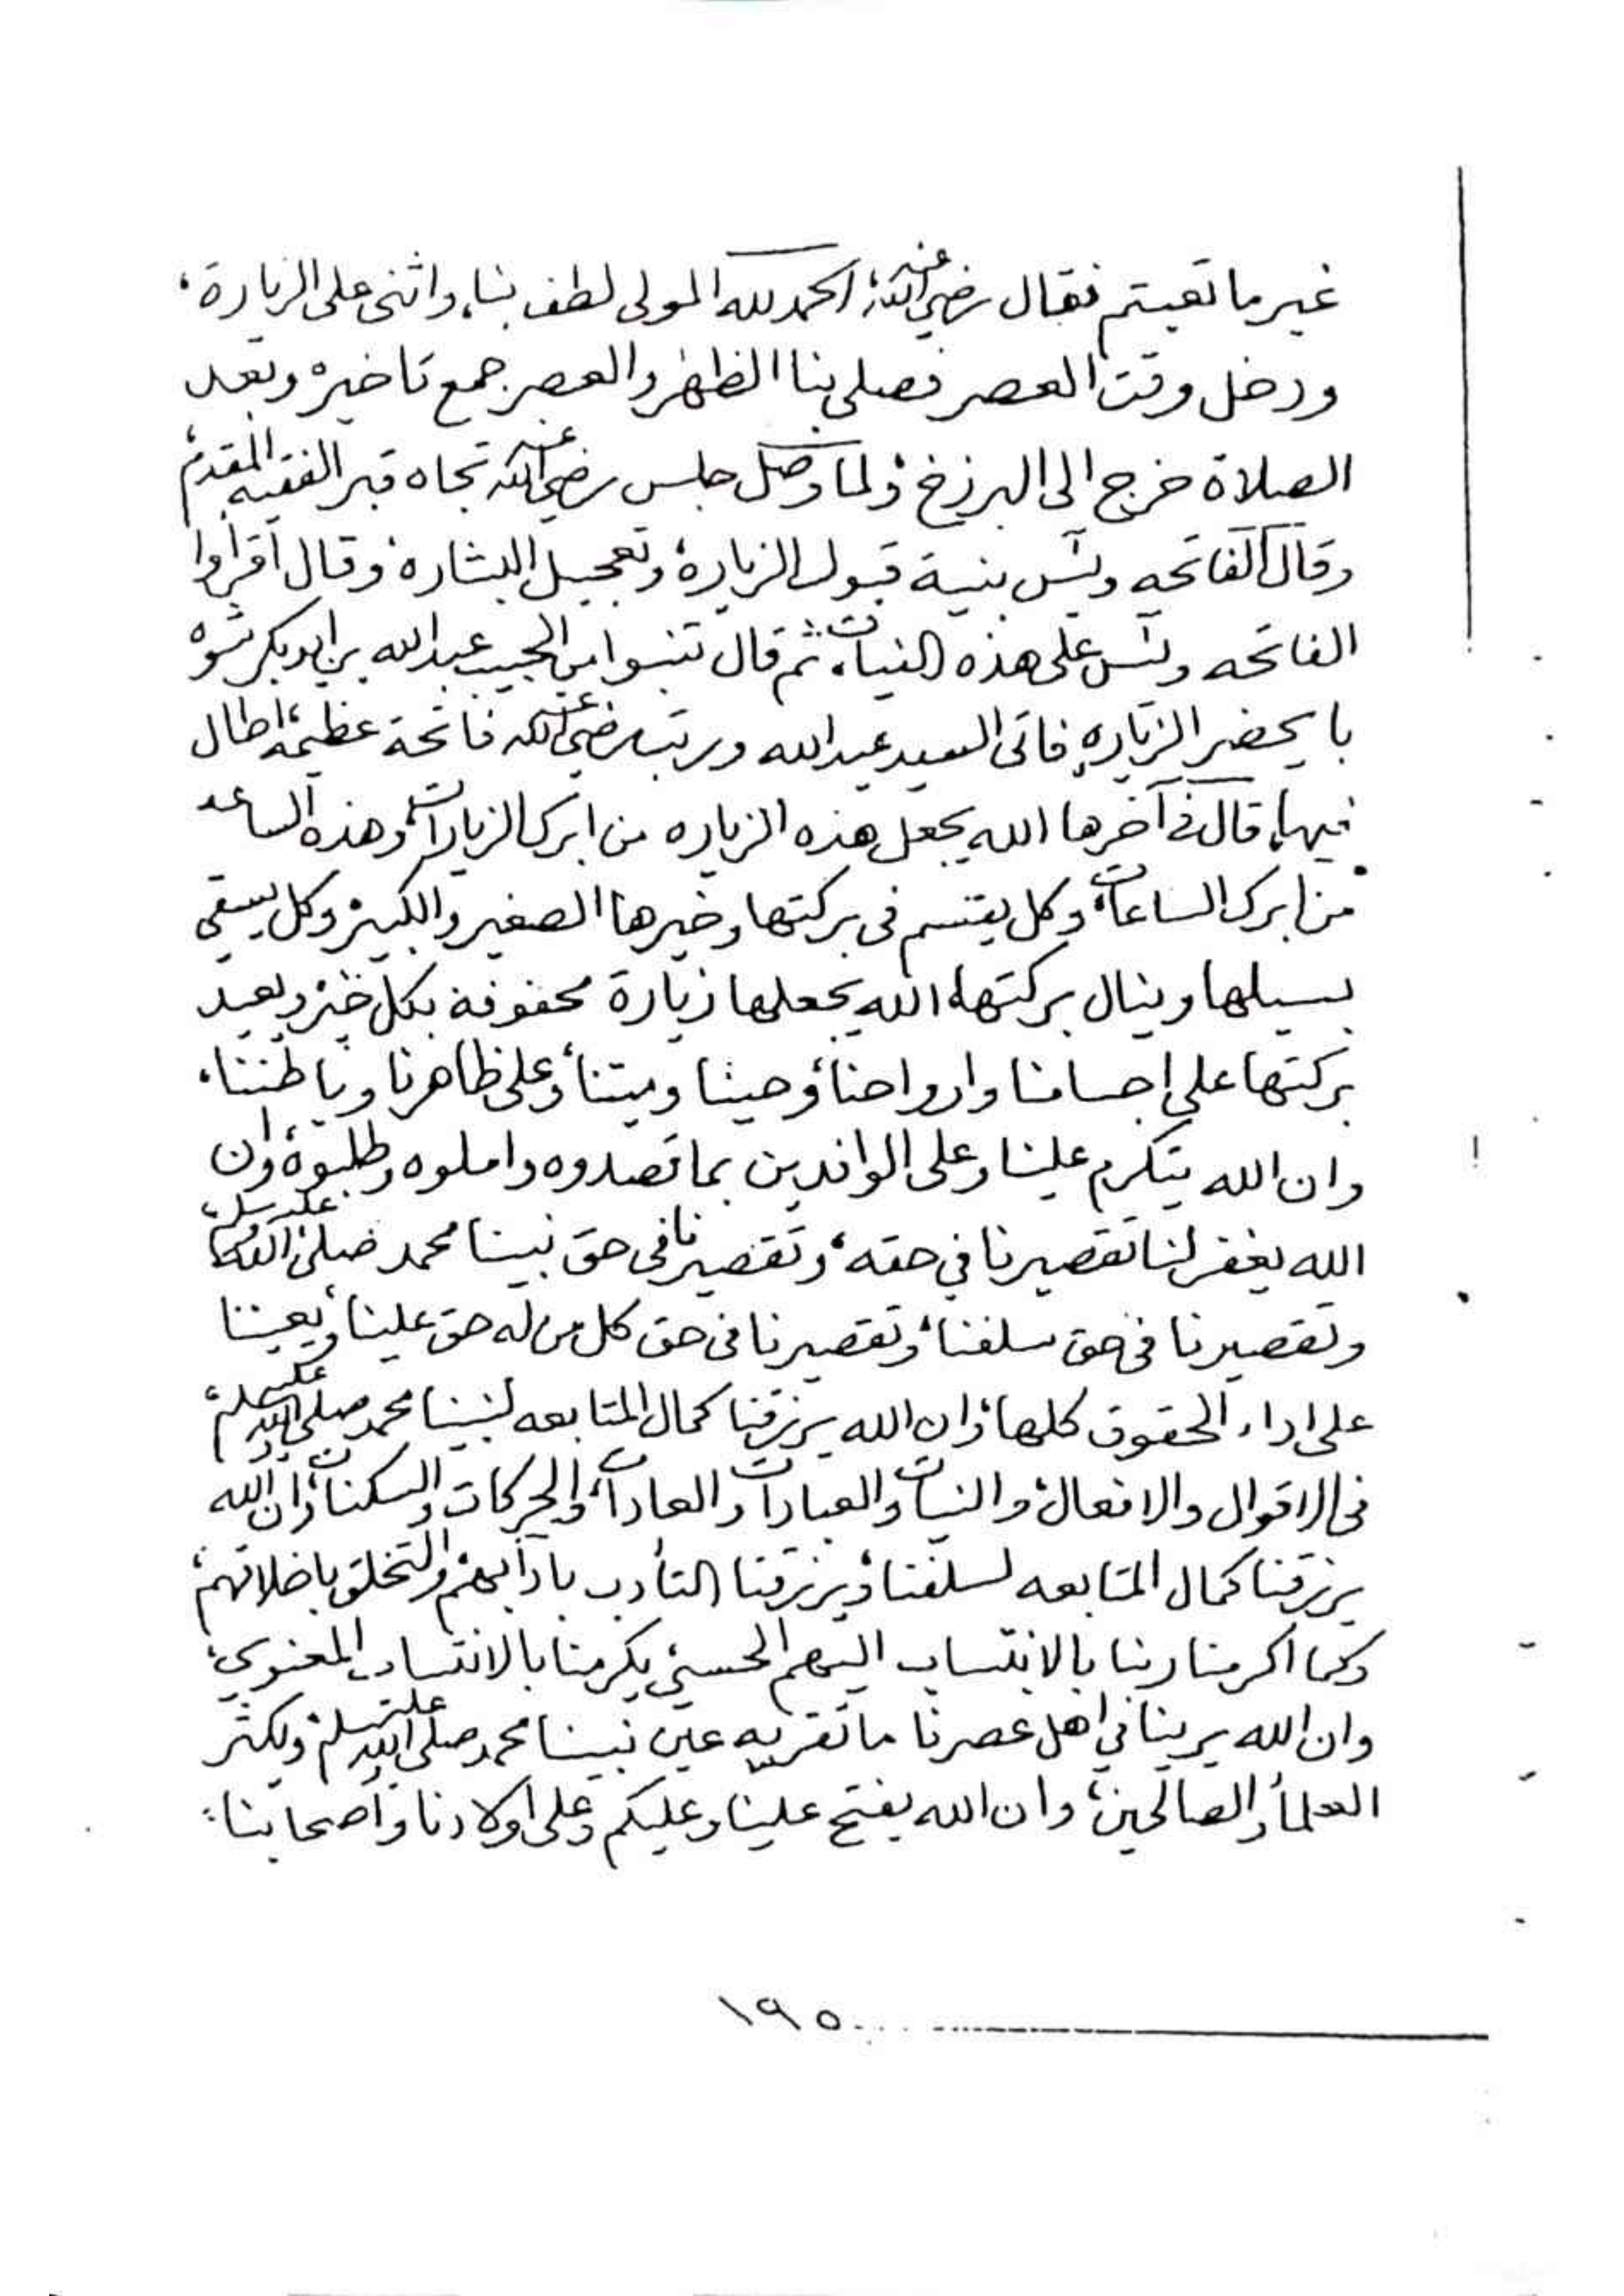 غير ما تعبتم فقال رضي الله عنه، الحمد لله المولى لطف بنا، واثنى على الزيارة،
ودخل وقت العصر فصلى بنا الظهر والعصر جمع تاخير، وبعد
الصلاة خرج الى البرزخ، ولما وصل جلس رضي الله عنه تجاه قبر الفقيه المقدم،
وقال الفاتحه ويس بنية قبول الزياره، وتعجيل البشاره، وقال اقرأوا
الفاتحه ويس على هذه النيات، ثم قال الحبيب عبدالله بن ابوبكر
با يحضر الزياره، فاتى السيد عبدالله ورتب رضي الله عنه فاتحة عظيمه، اطال
فيها، قال في آخرها الله يجعل هذه الزياره من ابرك الزيارات، وهذه الساعه
من ابرك الساعات، وكل يقتسم في بركتها وخيرها الصغير والكبير، وكل يسقي
بسيلها وينال بركتها، الله يجعلها زيارة محفوفة بكل خير، ويعيد
بركتها على اجسامنا وارواحنا، وحينا وميتنا، وعلى ظاهرنا وباطننا،
وان الله يتكرم علينا وعلى الوافدين بما قصدوه واملوه وطلبوه، وان
الله يغفر لنا تقصيرنا في حقه، وتقصيرنا في حق نبينا محمد صلى الله عليه وسلم،
وتقصيرنا في حق سلفنا، وتقصيرنا في حق كل من له حق علينا، ويعيننا
على اداء الحقوق كلها، وان الله يرزقنا كمال المتابعه لنبينا محمد صلى الله عليه وسلم،
في الاقوال والافعال، والنيات والعبادات والعادات، والحركات والسكنات، وان الله
يرزقنا كمال المتابعه لسلفنا، ويرزقنا التأدب بادآبهم، والتخلق باخلاقهم،
وكما اكرمنا ربنا بالانتساب اليهم الحسي، يكرمنا بالانتساب المعنوي،
وان الله يرينا في اهل عصرنا ما تقر به عين نبينا محمد صلى الله عليه وسلم، ويكثر
العلماء والصالحين، وان الله يفتح علينا وعليكم وعلى اولادنا وأصحابنا،
١٩٥